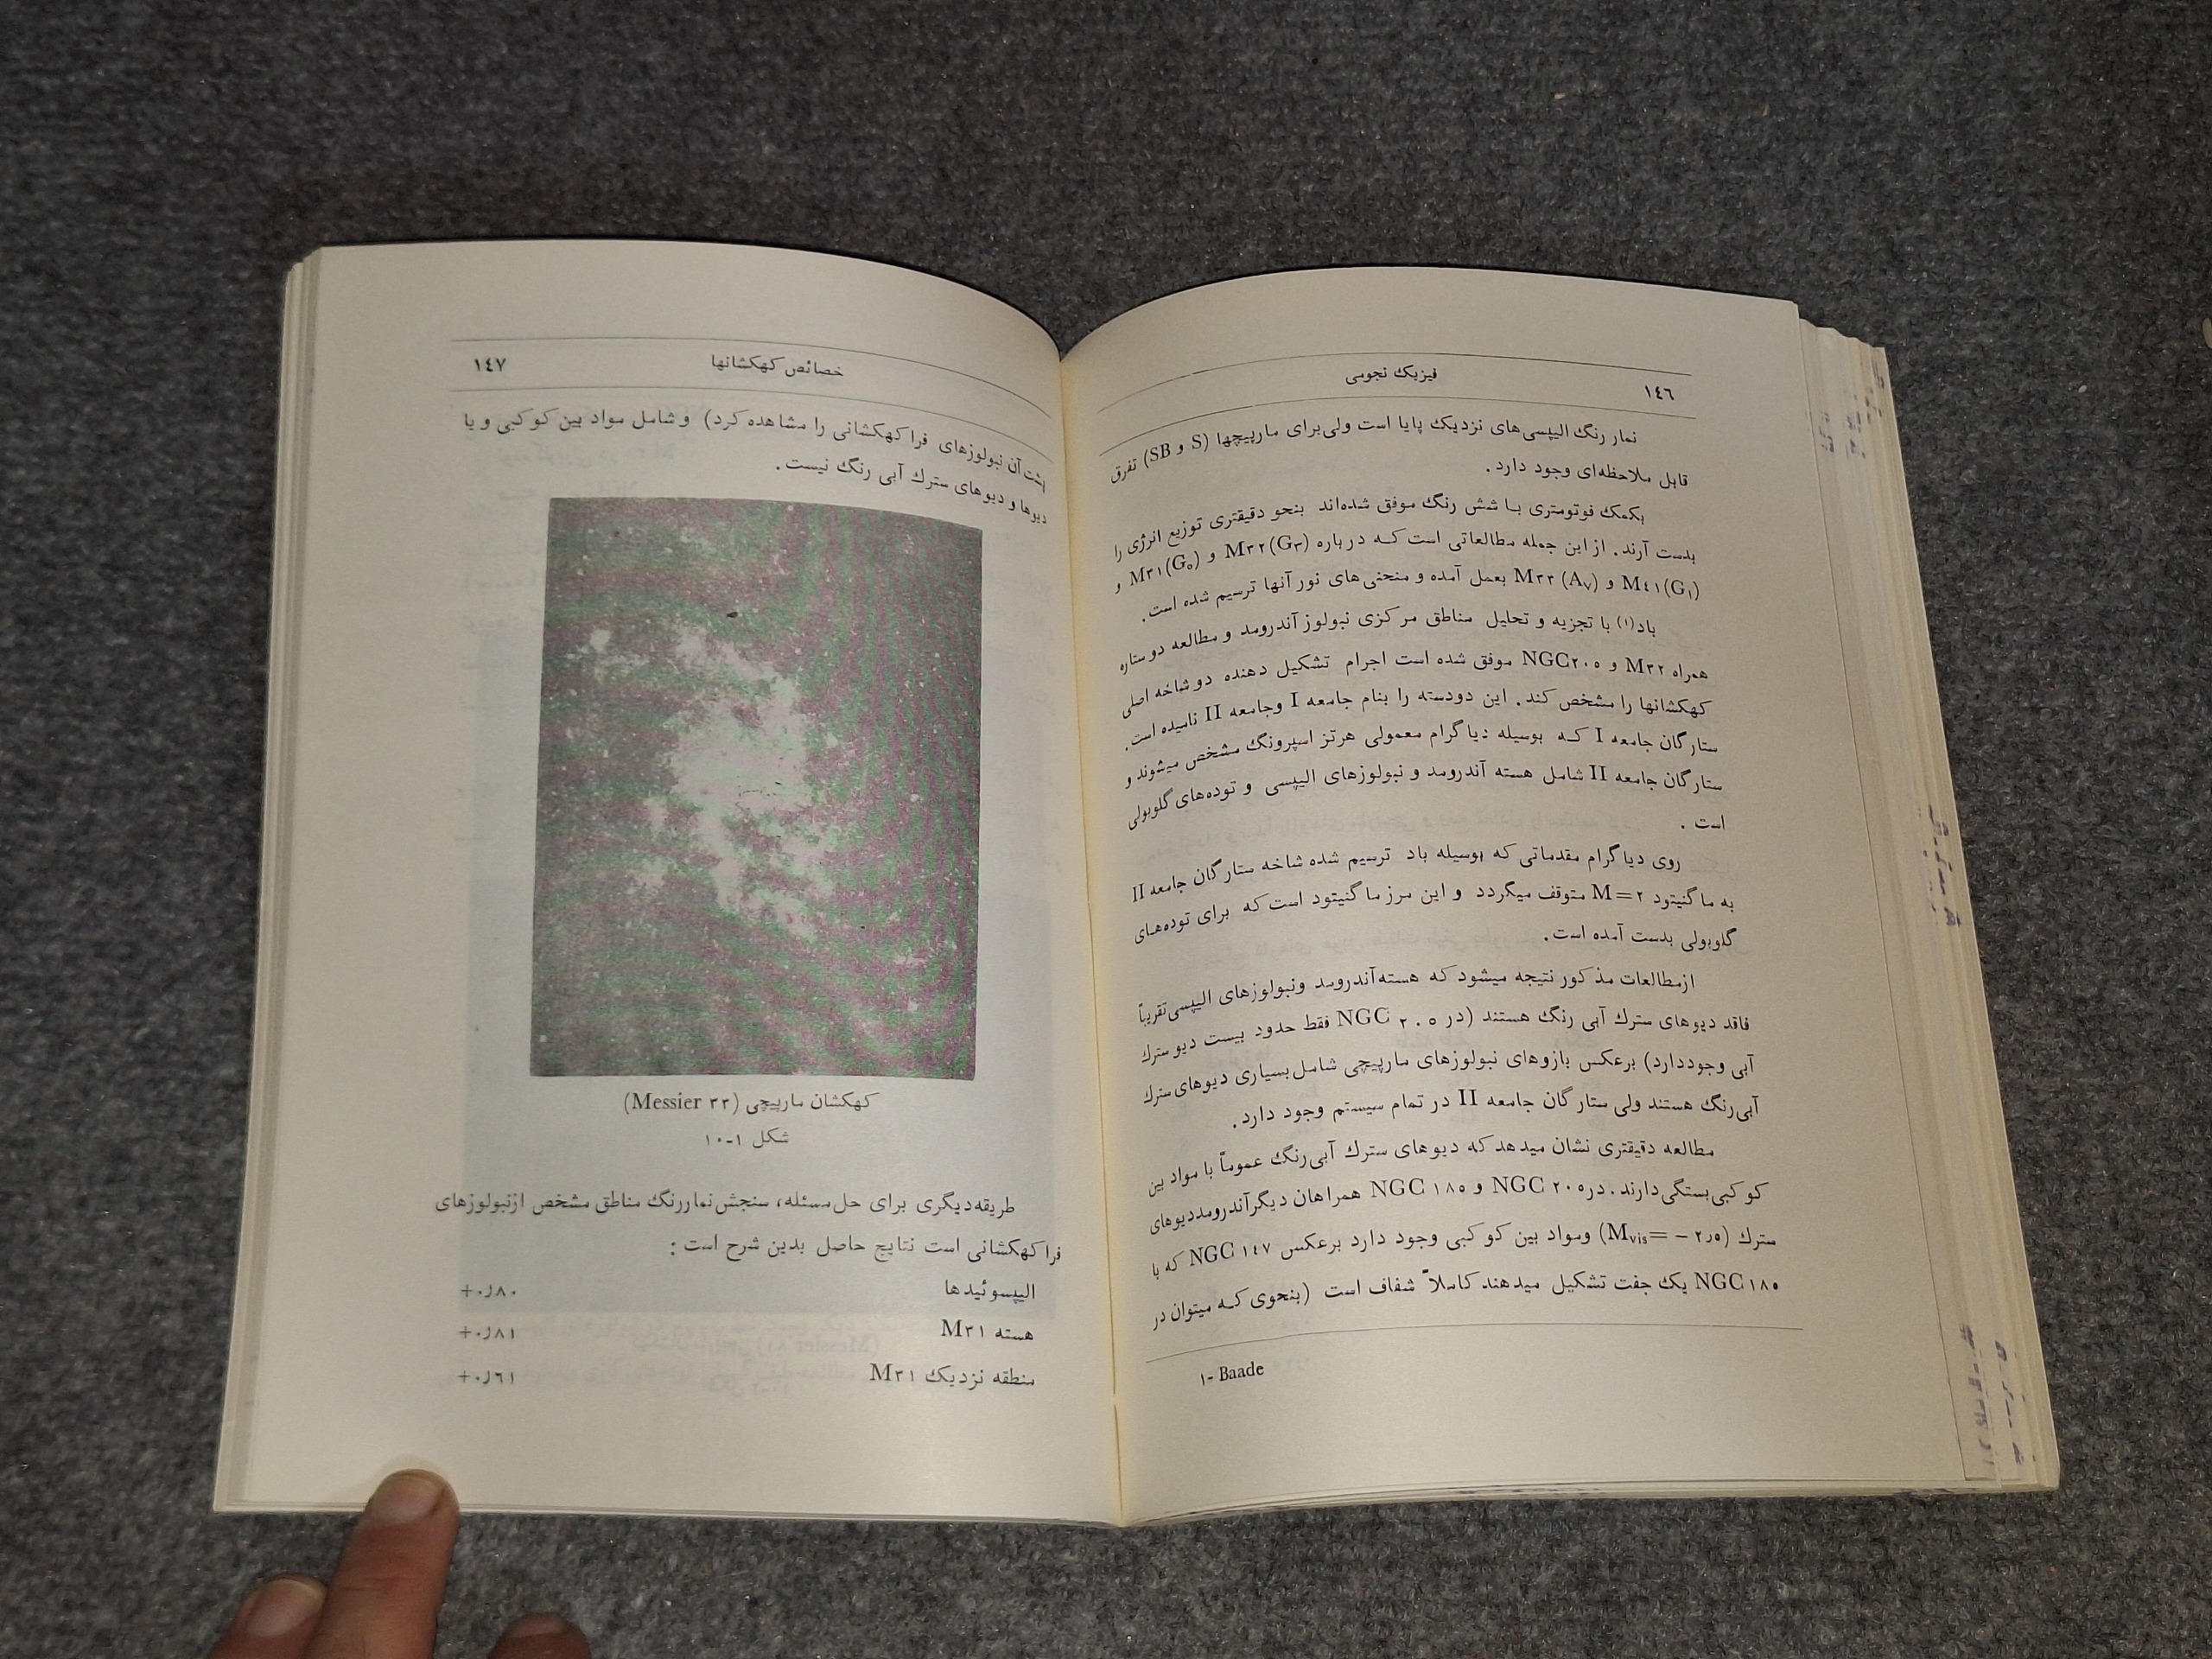 ١٤٦
فیزیک نجومی
نمار رنگ الیپسی‌های نزدیک پایا است ولی برای مارپیچها (S و SB) تفرق
قابل ملاحظه‌ای وجود دارد.
بکمک فوتومتری با شش رنگ موفق شده‌اند بنحو دقیقتری توزیع انرژی را
بدست آرند. از این جمله مطالعاتی است که درباره M٣٢(G٣) و M٣١(G٥) و
M٤١(G١) و M٣٣(A٧) بعمل آمده و منحنی‌های نور آنها ترسیم شده است.
باد(١) با تجزیه و تحلیل مناطق مرکزی نبولوز آندرومد و مطالعه دو ستاره
همراه M٣٢ و NGC٢٠٥ موفق شده است اجرام تشکیل دهنده دو شاخه اصلی
کهکشانها را مشخص کند. این دودسته را بنام جامعه I وجامعه II نامیده است.
ستارگان جامعه I که بوسیله دیاگرام معمولی هرتز اسپرونگ مشخص میشوند و
ستارگان جامعه II شامل هسته آندرومد و نبولوزهای الیپسی و توده‌های گلوبولی
است.
روی دیاگرام مقدماتی که بوسیله باد ترسیم شده شاخه ستارگان جامعه II
به ماگنیتود M=٢ متوقف میگردد و این مرز ماگنیتود است که برای توده‌های
گلوبولی بدست آمده است.
ازمطالعات مذکور نتیجه میشود که هسته آندرومد ونبولوزهای الیپسی تقریباً
فاقد دیوهای سترك آبی رنگ هستند (در NGC ٢٠٥ فقط حدود بیست دیو سترك
آبی وجوددارد) برعکس بازوهای نبولوزهای مارپیچی شامل بسیاری دیوهای سترك
آبی‌رنگ هستند ولی ستارگان جامعه II در تمام سیستم وجود دارد.
مطالعه دقیقتری نشان میدهد که دیوهای سترك آبی‌رنگ عموماً با مواد بین
کوکبی‌بستگی‌دارند. در NGC ٢٠٥ و NGC ١٨٥ همراهان دیگر آندرومد دیوهای
سترك (Mvis= −٢٫٥) ومواد بین کوکبی وجود دارد برعکس NGC ١٤٧ که با
NGC١٨٥ یک جفت تشکیل میدهند کاملاً شفاف است (بنحوی که میتوان در
١- Baade
خصائص کهکشانها
١٤٧
پشت آن نبولوزهای فراکهکشانی را مشاهده کرد) و شامل مواد بین کوکبی و یا
دیوها و دیوهای سترك آبی رنگ نیست.
کهکشان مارپیچی (Messier ٣٣)
شکل ١-١٠
طریقه‌دیگری برای حل‌مسئله، سنجش نماررنگ مناطق مشخص ازنبولوزهای
فراکهکشانی است نتایج حاصل بدین شرح است:
الیپسوئیدها +٠٫٨٠
هسته M٣١ +٠٫٨١
منطقه نزدیک M٣١ +٠٫٦١